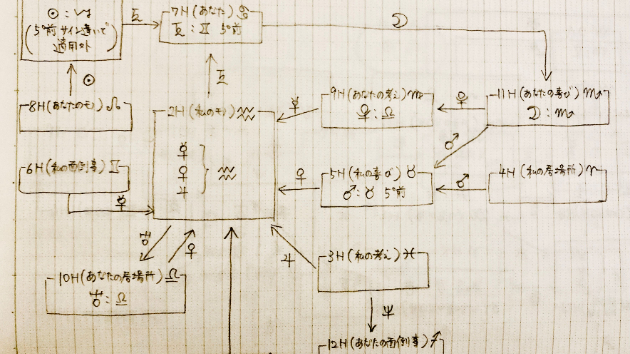 ☉:♑
(5°前サイン違いで
適用外
♄
7H(あなた)♋
♄:♊ 5°前
☽
☉
8H(あなたのモノ)♌
♄
2H(私のモノ)♒
☿
♀
♃
♒
☿
9H(あなたの考え)♏
♀:♎
♀
11H(あなたの喜び)♏
☽:♏
♂
6H(私の面倒事)♊
☿
♀
5H(私の喜び)♉
♂:♉ 5°前
♂
4H(私の居場所)♈
♀
10H(あなたの居場所)♎
♃
3H(私の考え)♓
♃
12H(あなたの面倒事)♐